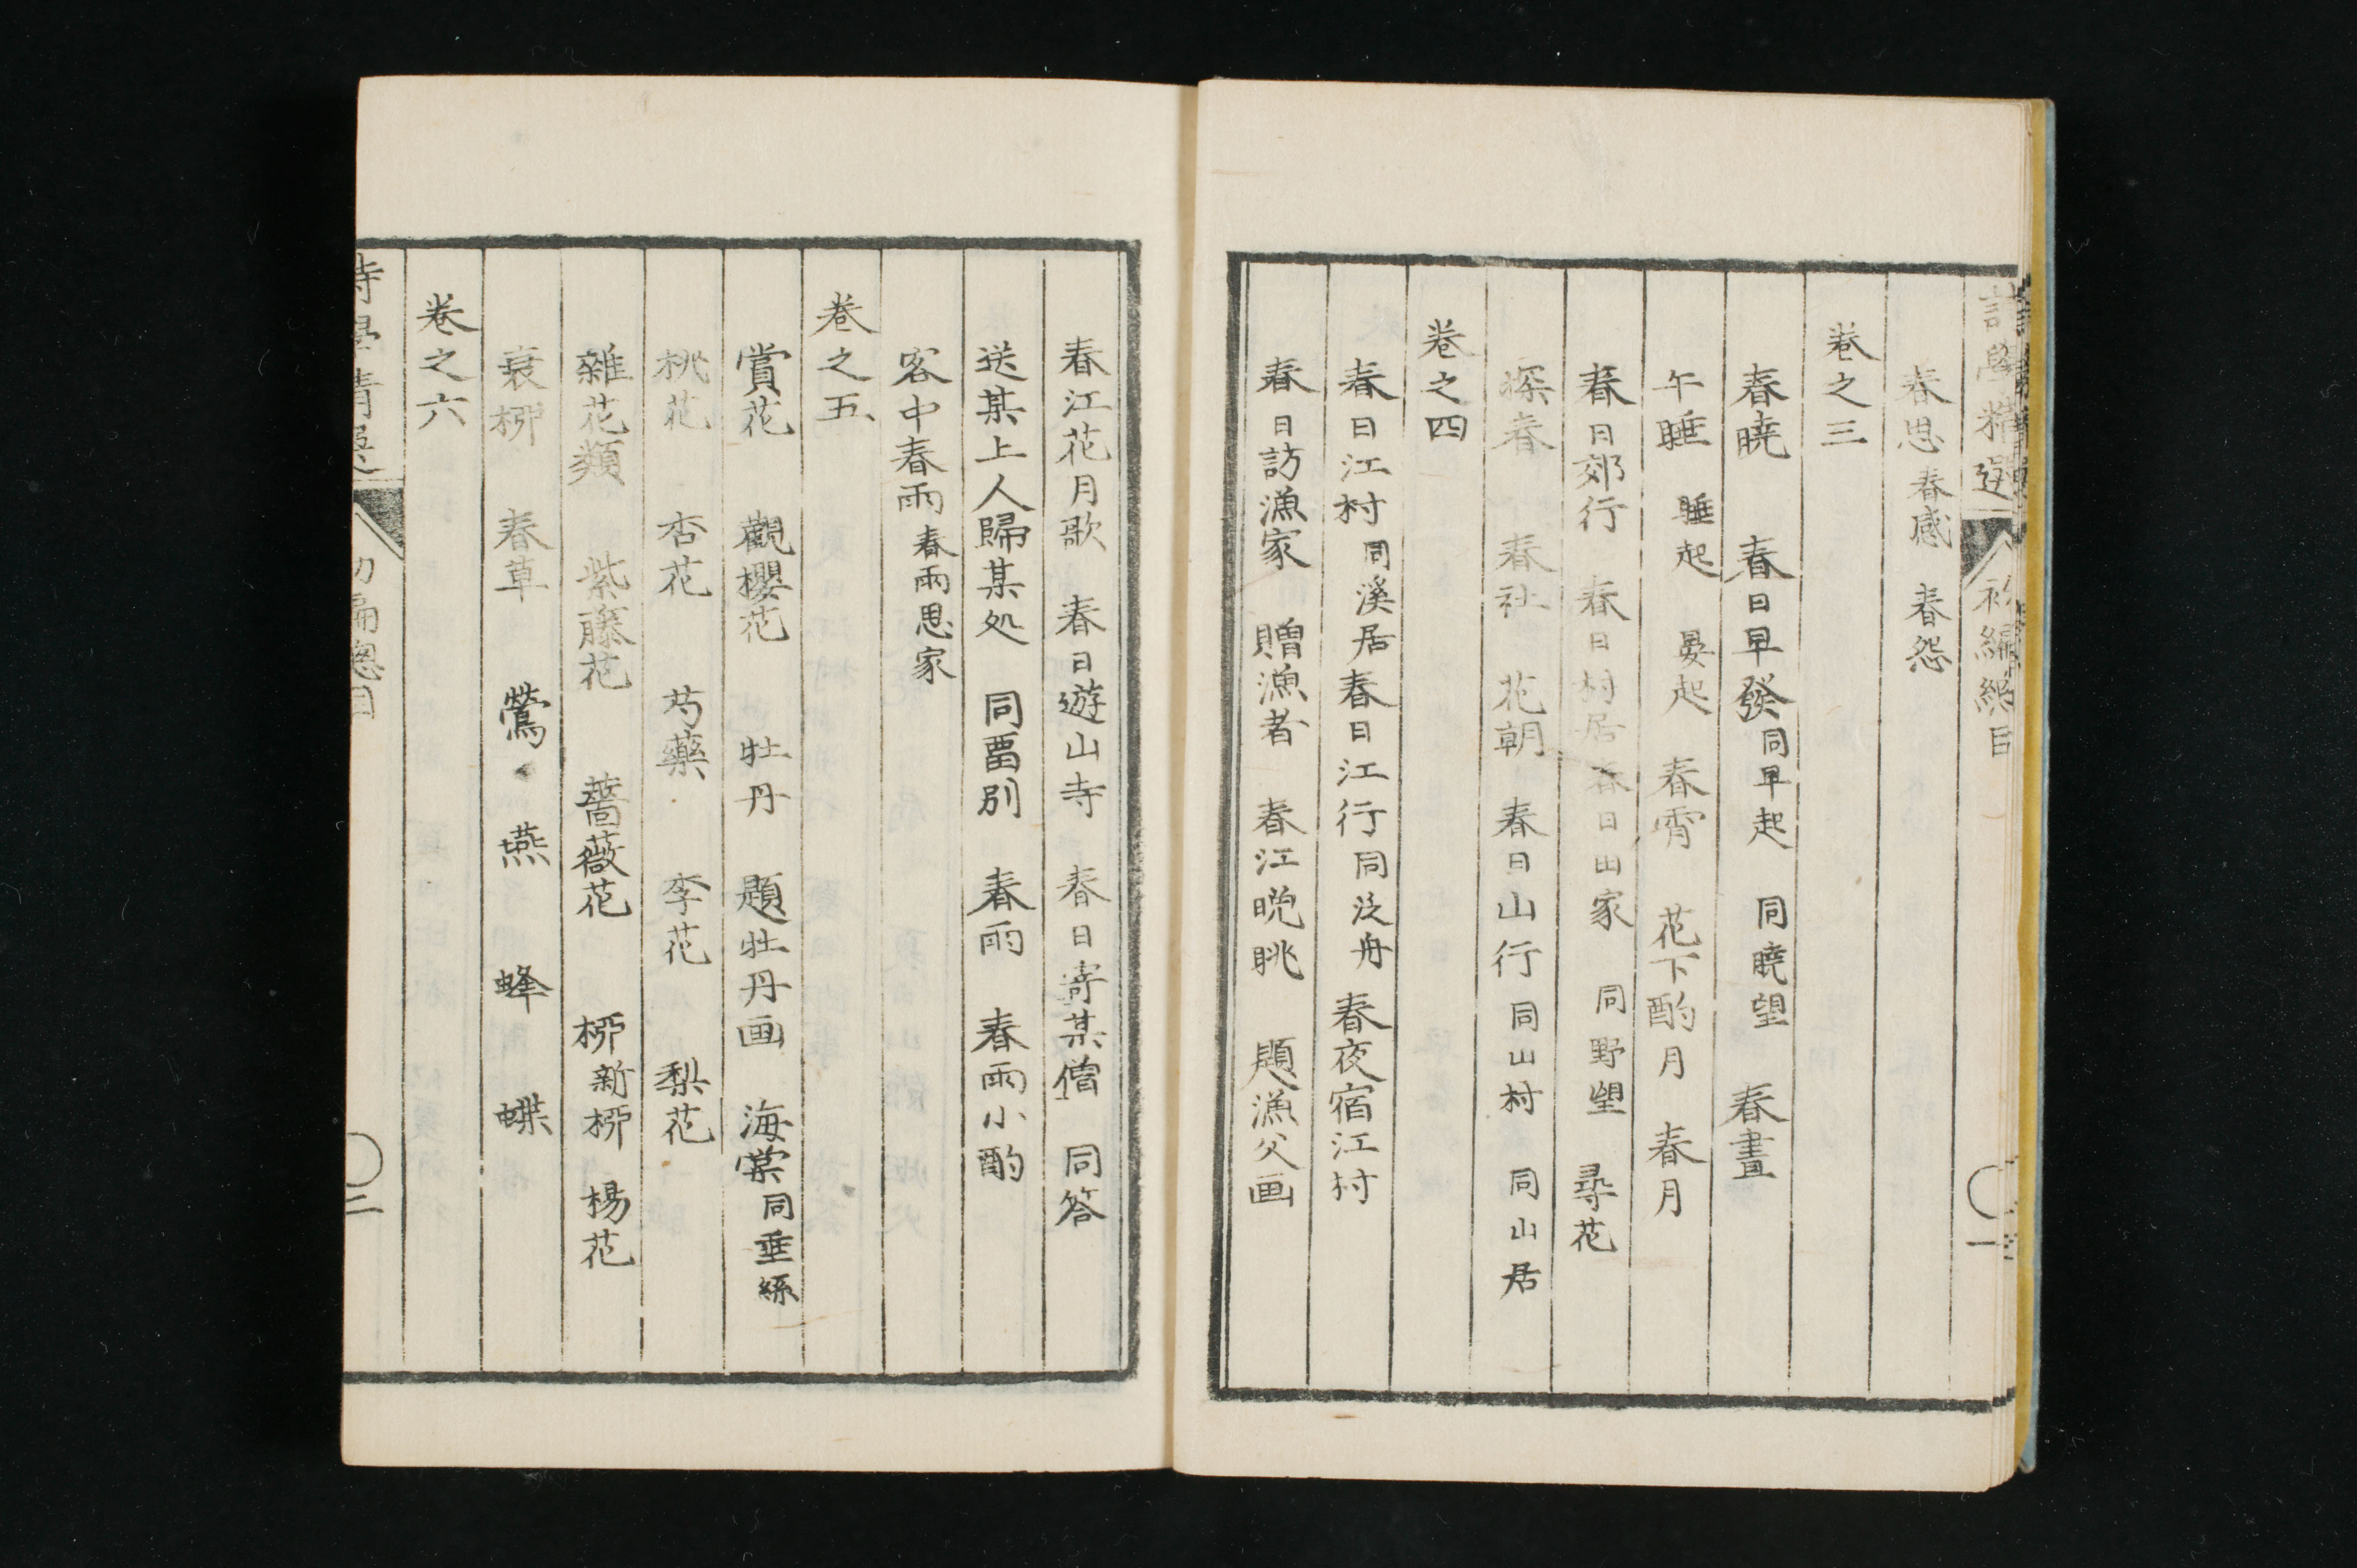 詩學精選 初編總目 一
春思 春感 春怨
卷之三
春曉 春日早發 同早起 同曉望 春晝
午睡 睡起 晏起 春宵 花下酌月 春月
春日郊行 春日村居 春日山家 同野望 尋花
探春 春社 花朝 春日山行 同山村 同山居
卷之四
春日江村 同溪居 春日江行 同泛舟 春夜宿江村
春日訪漁家 贈漁者 春江晩眺 題漁父画
春江花月歌 春日遊山寺 春日寄某僧 同答
送某上人歸某処 同畱別 春雨 春雨小酌
客中春雨 春雨思家
卷之五
賞花 觀櫻花 牡丹 題牡丹画 海棠 同垂絲
桃花 杏花 芍藥 李花 梨花
雜花類 紫藤花 薔薇花 柳 新柳 楊花
衰柳 春草 鶯 燕 蜂 蝶
卷之六
詩學精選 初編總目 二